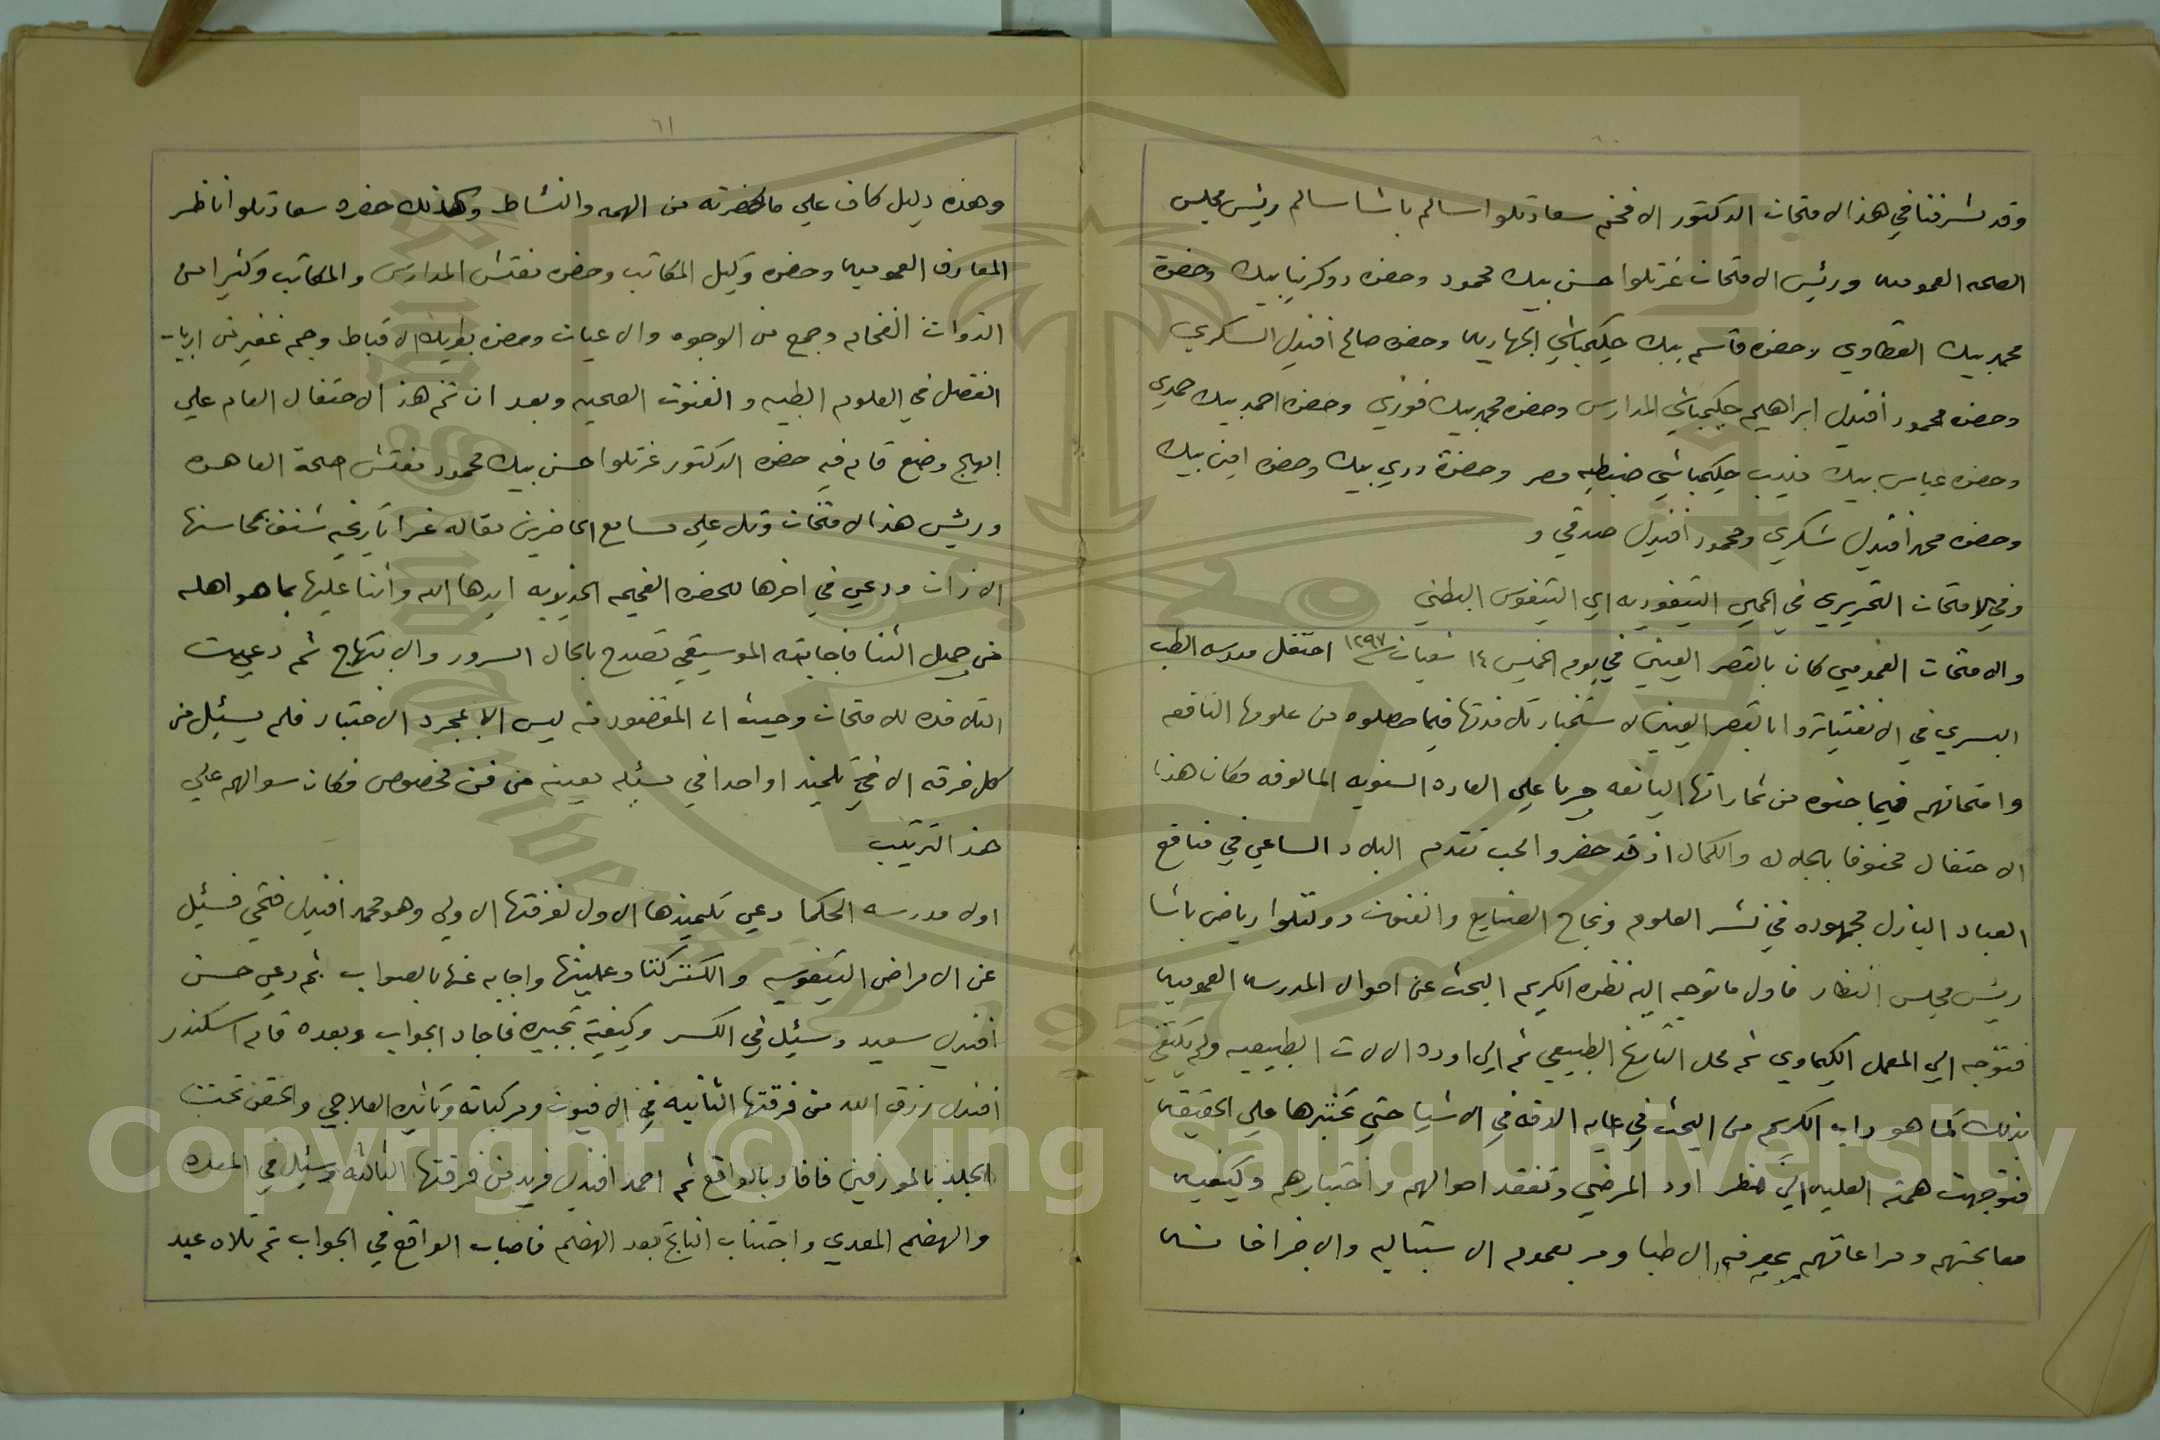 وقد تشرفنا في هذا الامتحان الدكتور الافخم سعادتلوا سالم باشا سالم رئيس مجلس
الصحه العموميه ورئيس الامتحان عزتلوا حسن بيك محمود وحضره دوكرنيا بيك وحضرة
محمد بيك القطاوي وحضره قاسم بيك حكيمباشي الجهاديه وحضره صالح افندي السكري
وحضره محمود افندي ابراهيم حكيمباشي المدارس وحضره محمد بيك فوزي وحضره احمد بيك حمدي
وحضره عباس بيك حكيمباشي ضبطيه مصر وحضرة دري بيك وحضره امين بيك
وحضره محمد افندي شكري ومحمود افندي صدقي و
وفي الامتحان التحريري في الحمي التيفوديه اي التيفوس البطني
والامتحان العمومي كان بالقصر العيني في يوم الخميس ١٤ شعبان سنة ١٢٩٧ احتفل مدرسه الطب
البسري في الانفتياترو انا بالقصر العيني لاستخبار تلامذتها فيما حصلوه من علومها النافعه
وامتحانهم فيما جنوه من ثماراتها اليانعه جريا علي العاده السنويه المالوفه فكان هذا
الاحتفال محفوفا بالجلال والكمال اذ قد حضر والحب تقدم البلاد الساعي في منافع
العباد الباذل مجهوده في نشر العلوم ونجاح الصنايع والفنون دولتلوا رياض باشا
رئيس مجلس النظار فاول ما توجه اليه نظره الكريم البحث عن احوال المدرسه العموميه
فتوجه الي المعمل الكيماوي ثم محل التاريخ الطبيعي ثم الي اوده الالات الطبيعيه ولم يكتفي
بذلك كما هو داب الكريم من البحث في غايه الدقه في الاشيا حتي يختبرها علي الحقيقه
فتوجهت همته العليه الي نظر اود المرضي وتفقد احوالهم واختبارهم وكيفيه
معالجتهم ومراعاتهم بمعرفه الاطبا ومر بعموم الاسبتاليه والاجزاخانه
٦١
وهذه دليل كاف علي ما لحضرته من الهمه والنشاط وكذلك حضره سعادتلوا ناظر
المعارف العموميه وحضره وكيل المكاتب وحضره مفتش المدارس والمكاتب وكثيرا من
الذوات الفخام وجمع من الوجوه والاعيان وحضره بطريك الاقباط وجم غفير من ارباب
الفضل في العلوم الطبيه والفنون الصحيه وبعد ان تم هذا الاحتفال العام علي
ابهج وضع قام فيه حضره الدكتور عزتلوا حسن بيك محمود مفتش صحة القاهره
ورئيس هذا الامتحان وتلي علي مسامع الحاضرين مقاله غرا تاريخيه شنف بمحاسنها
الاذان ودعي في اخرها للحضره الفخيمه الخديويه ايدها الله واثنا عليها بما هو اهله
من جميل الثنا فاجابته الموسيقي تصدح بالحان السرور والابتهاج ثم دعيت
التلامذه للامتحان وحيث ان المقصود منه ليس الا بمجرد الاختبار فلم يسئل من
كل فرقه الا تلميذا واحدا في مسئله معينه من فن مخصوص فكان سوالهم علي
هذا الترتيب
اول مدرسه الحكما دعي تلميذها الاول لفرقتها الاولي وهو محمد افندي فتحي فسئل
عن الامراض التيفوسيه والكنتركتا وعمليتها واجابه عنها بالصواب ثم دعي حسن
افندي سعيد وسئل في الكسر وكيفية تجبيره فاجاد الجواب وبعده قام اسكندر
افندي رزق الله من فرقتها الثانيه في الافيون ومركباته وتاثيره العلاجي والحقن تحت
الجلد بالمورفين فافاد بالواقع ثم احمد افندي فريد من فرقتها الثالثه وسئل في المعده
والهضم المعدي واجتناب النايج بعد الهضم فاصاب الواقع في الجواب ثم تلاه عبد
Copyright © King Saud University
King Saud University
1957